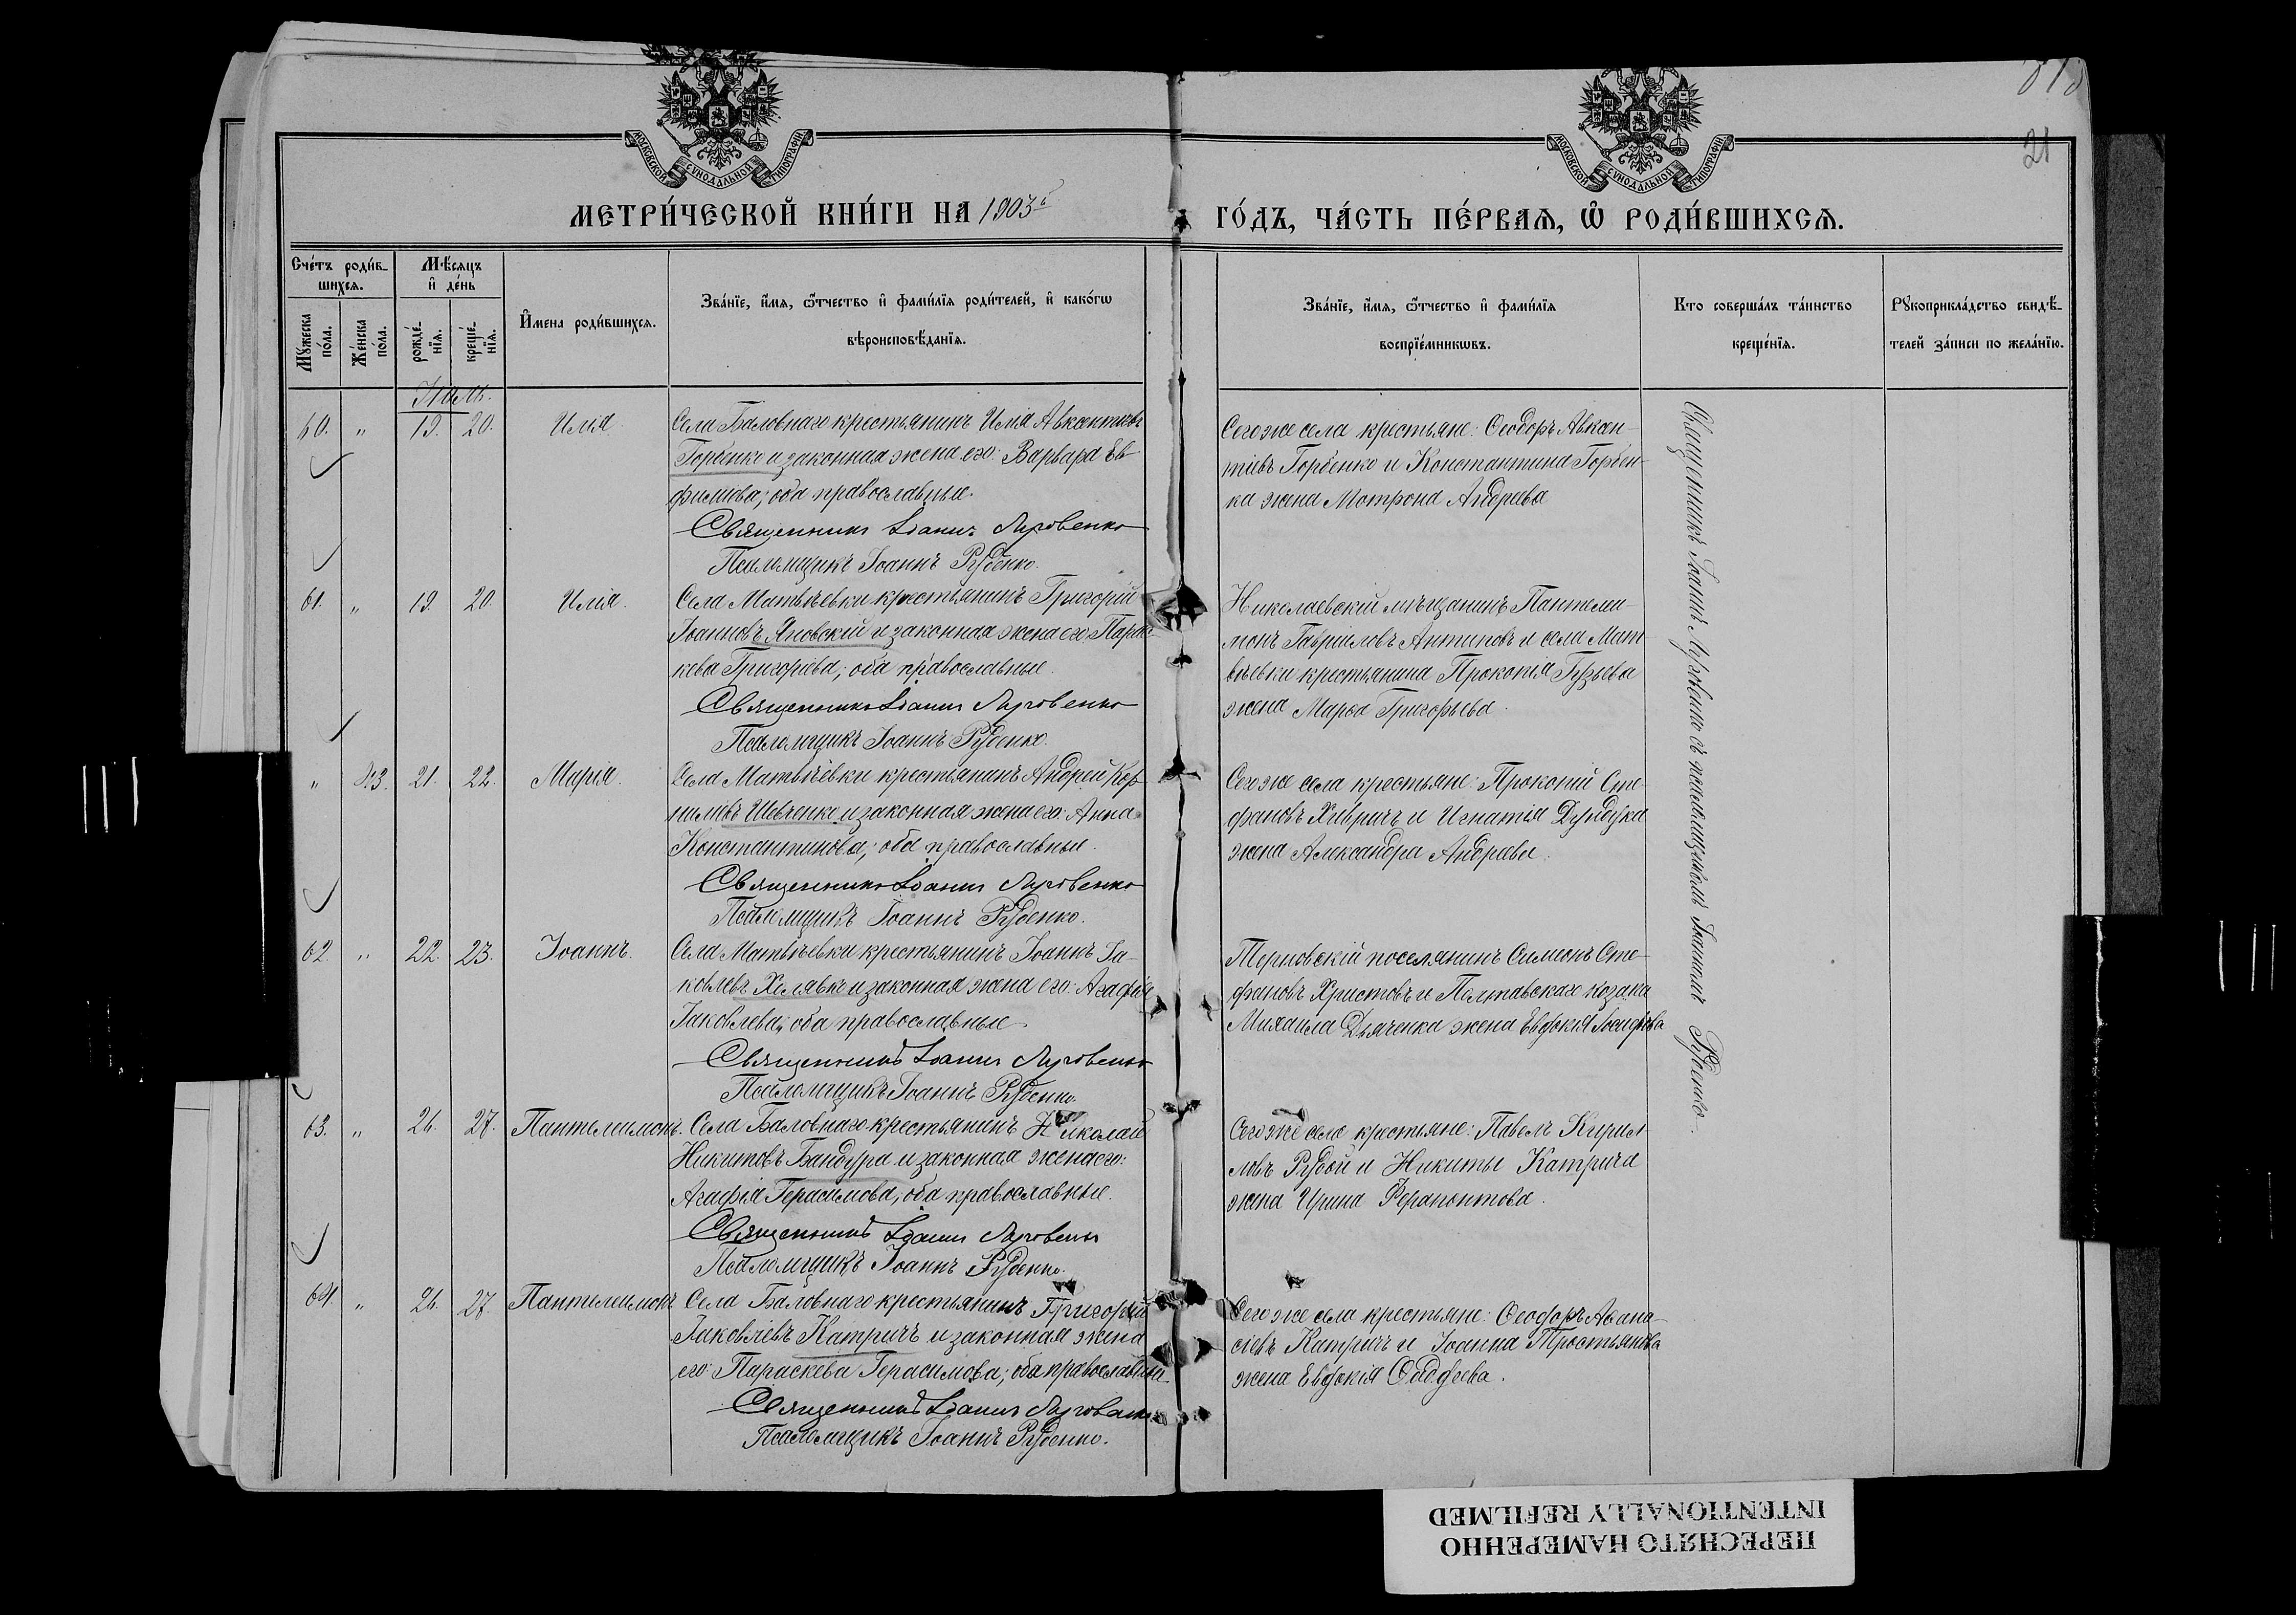 813
21
МОСКОВСКОЙ СѴНОДАЛЬНОЙ ТИПОГРАФІИ
МОСКОВСКОЙ СѴНОДАЛЬНОЙ ТИПОГРАФІИ
МЕТРИ́ЧЕСКОЙ КНИ́ГИ НА 1903й
ГО́ДЪ, ЧА́СТЬ ПЕ́РВАЯ, Ѡ҆ РОДИ́ВШИХСЯ.
Сче́тъ роди́в-
шихся.
Мѣ́сяцъ
и҆ де́нь
Мꙋ́жеска по́ла.
Же́нска по́ла.
рожде́-нїя.
креще́-нїя.
И҆мена роди́вшихся.
Зва́нїе, и҆́мя, ѻ҆́тчество и҆ фами́лїя роди́телей, и҆ како́гѡ
вѣроисповѣ́данїя.
Зва́нїе, и҆́мя, ѻ҆́тчество и҆ фами́лїя
воспрїе́мникѡвъ.
Кто соверша́лъ та́инство
креще́нїя.
Рꙋкоприкла́дство свидѣ́-
телей за́писи по жела́нїю.
Іюль.
60. " 19. 20. Илія.
Села Баловнаго крестьянинъ Илія Авксентіевъ
Горбенко и законная жена его: Варвара Ев-
фимова; оба православные.
Священникъ Іоаннъ Луговенко
Псаломщикъ Іоаннъ Руденко.
Сего же села крестьяне: Ѳеодоръ Авксен-
тіевъ Горбенко и Константина Горбен-
ка жена Мотрона Андреева
61. " 19. 20. Илія.
Села Матвѣевки крестьянинъ Григорій
Іоанновъ Яновскій и законная жена его: Парас-
кева Григоріева; оба православные.
Священникъ Іоаннъ Луговенко
Псаломщикъ Іоаннъ Руденко.
Николаевскій мѣщанинъ Пантелеи-
монъ Гавріиловъ Антиповъ и села Мат-
вѣевки крестьянина Прокопія Гузьева
жена Марѳа Григорьева.
" 53. 21. 22. Марія.
Села Матвѣевки крестьянинъ Андрей Кор-
ниліевъ Шевченко и законная жена его: Анна
Константинова; оба православные.
Священникъ Іоаннъ Луговенко
Псаломщикъ Іоаннъ Руденко.
Сего же села крестьяне: Прокопій Сте-
фановъ Хивричъ и Игнатія Дундука
жена Александра Андреева.
62. " 22. 23. Іоаннъ.
Села Матвѣевки крестьянинъ Іоаннъ Іа-
ковлевъ Халявко и законная жена его: Агафія
Іаковлева; оба православные.
Священникъ Іоаннъ Луговенко
Псаломщикъ Іоаннъ Руденко.
Терновскій поселянинъ Симеонъ Сте-
фановъ Христовъ и Полтавскаго козака
Михаила Дьяченка жена Евдокія Іосифова
63. " 26. 27. Пантелеимонъ.
Села Баловнаго крестьянинъ Николай
Никитовъ Бандура и законная жена его:
Агафія Герасимова; оба православные.
Священникъ Іоаннъ Луговенко
Псаломщикъ Іоаннъ Руденко.
Сего же села крестьяне: Павелъ Кирил-
ловъ Рудой и Никиты Катрича
жена Ирина Ферапонтова.
64. " 26. 27. Пантелеимонъ
Села Баловнаго крестьянинъ Григорій
Іаковлевъ Катричъ и законная жена
его: Параскева Герасимова; оба православные
Священникъ Іоаннъ Луговенко
Псаломщикъ Іоаннъ Руденко.
Сего же села крестьяне: Ѳеодоръ Аѳана-
сіевъ Катричъ и Іоанна Тростьянова
жена Евдокія Фаддеева.
Священникъ Іоаннъ Луговенко съ псаломщикомъ Іоанномъ Руденко.
ПЕРЕСНЯТО НАМЕРЕННО
INTENTIONALLY REFILMED